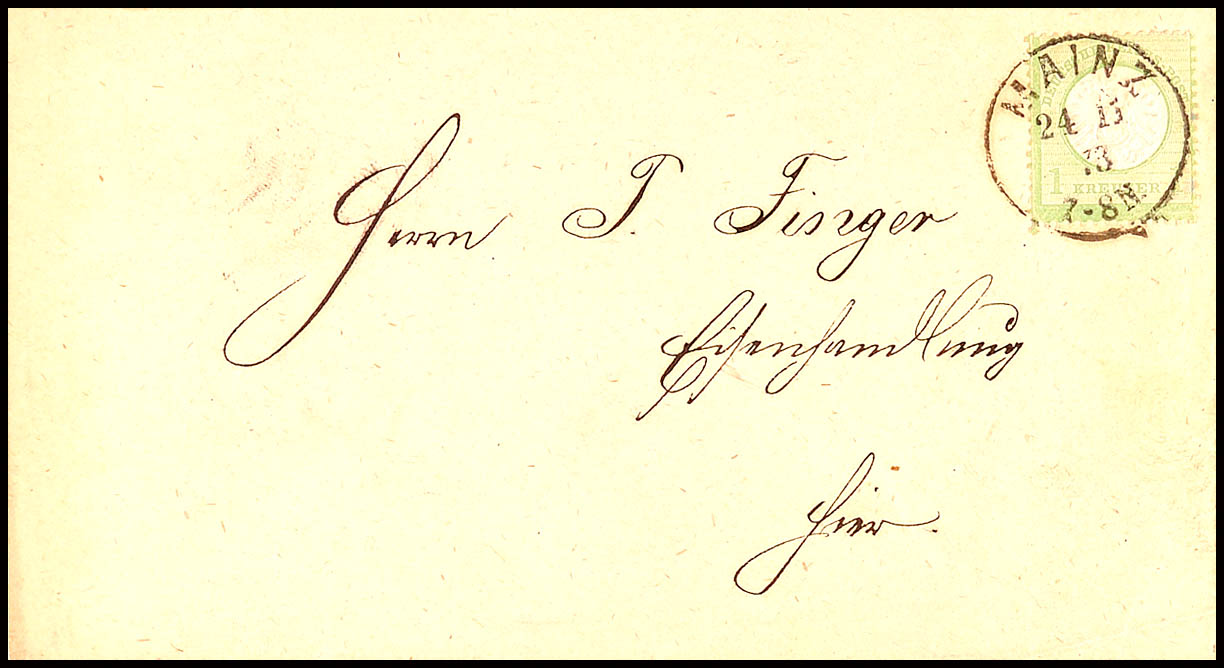 MAINZ
24 11
73
7-8N.
1 KREUZER 1
Herrn J. Finger
Eisenhandlung
Hier.